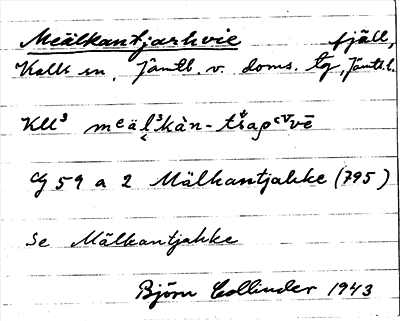 Meälkantjarhvie fjäll,
Kalls sn, Jämtl. v. doms. tg, Jämtl. l.
KU³ 
G 59 a 2 Mälkantjakke (795)
Se Mälkantjakke
Björn Collinder 1943